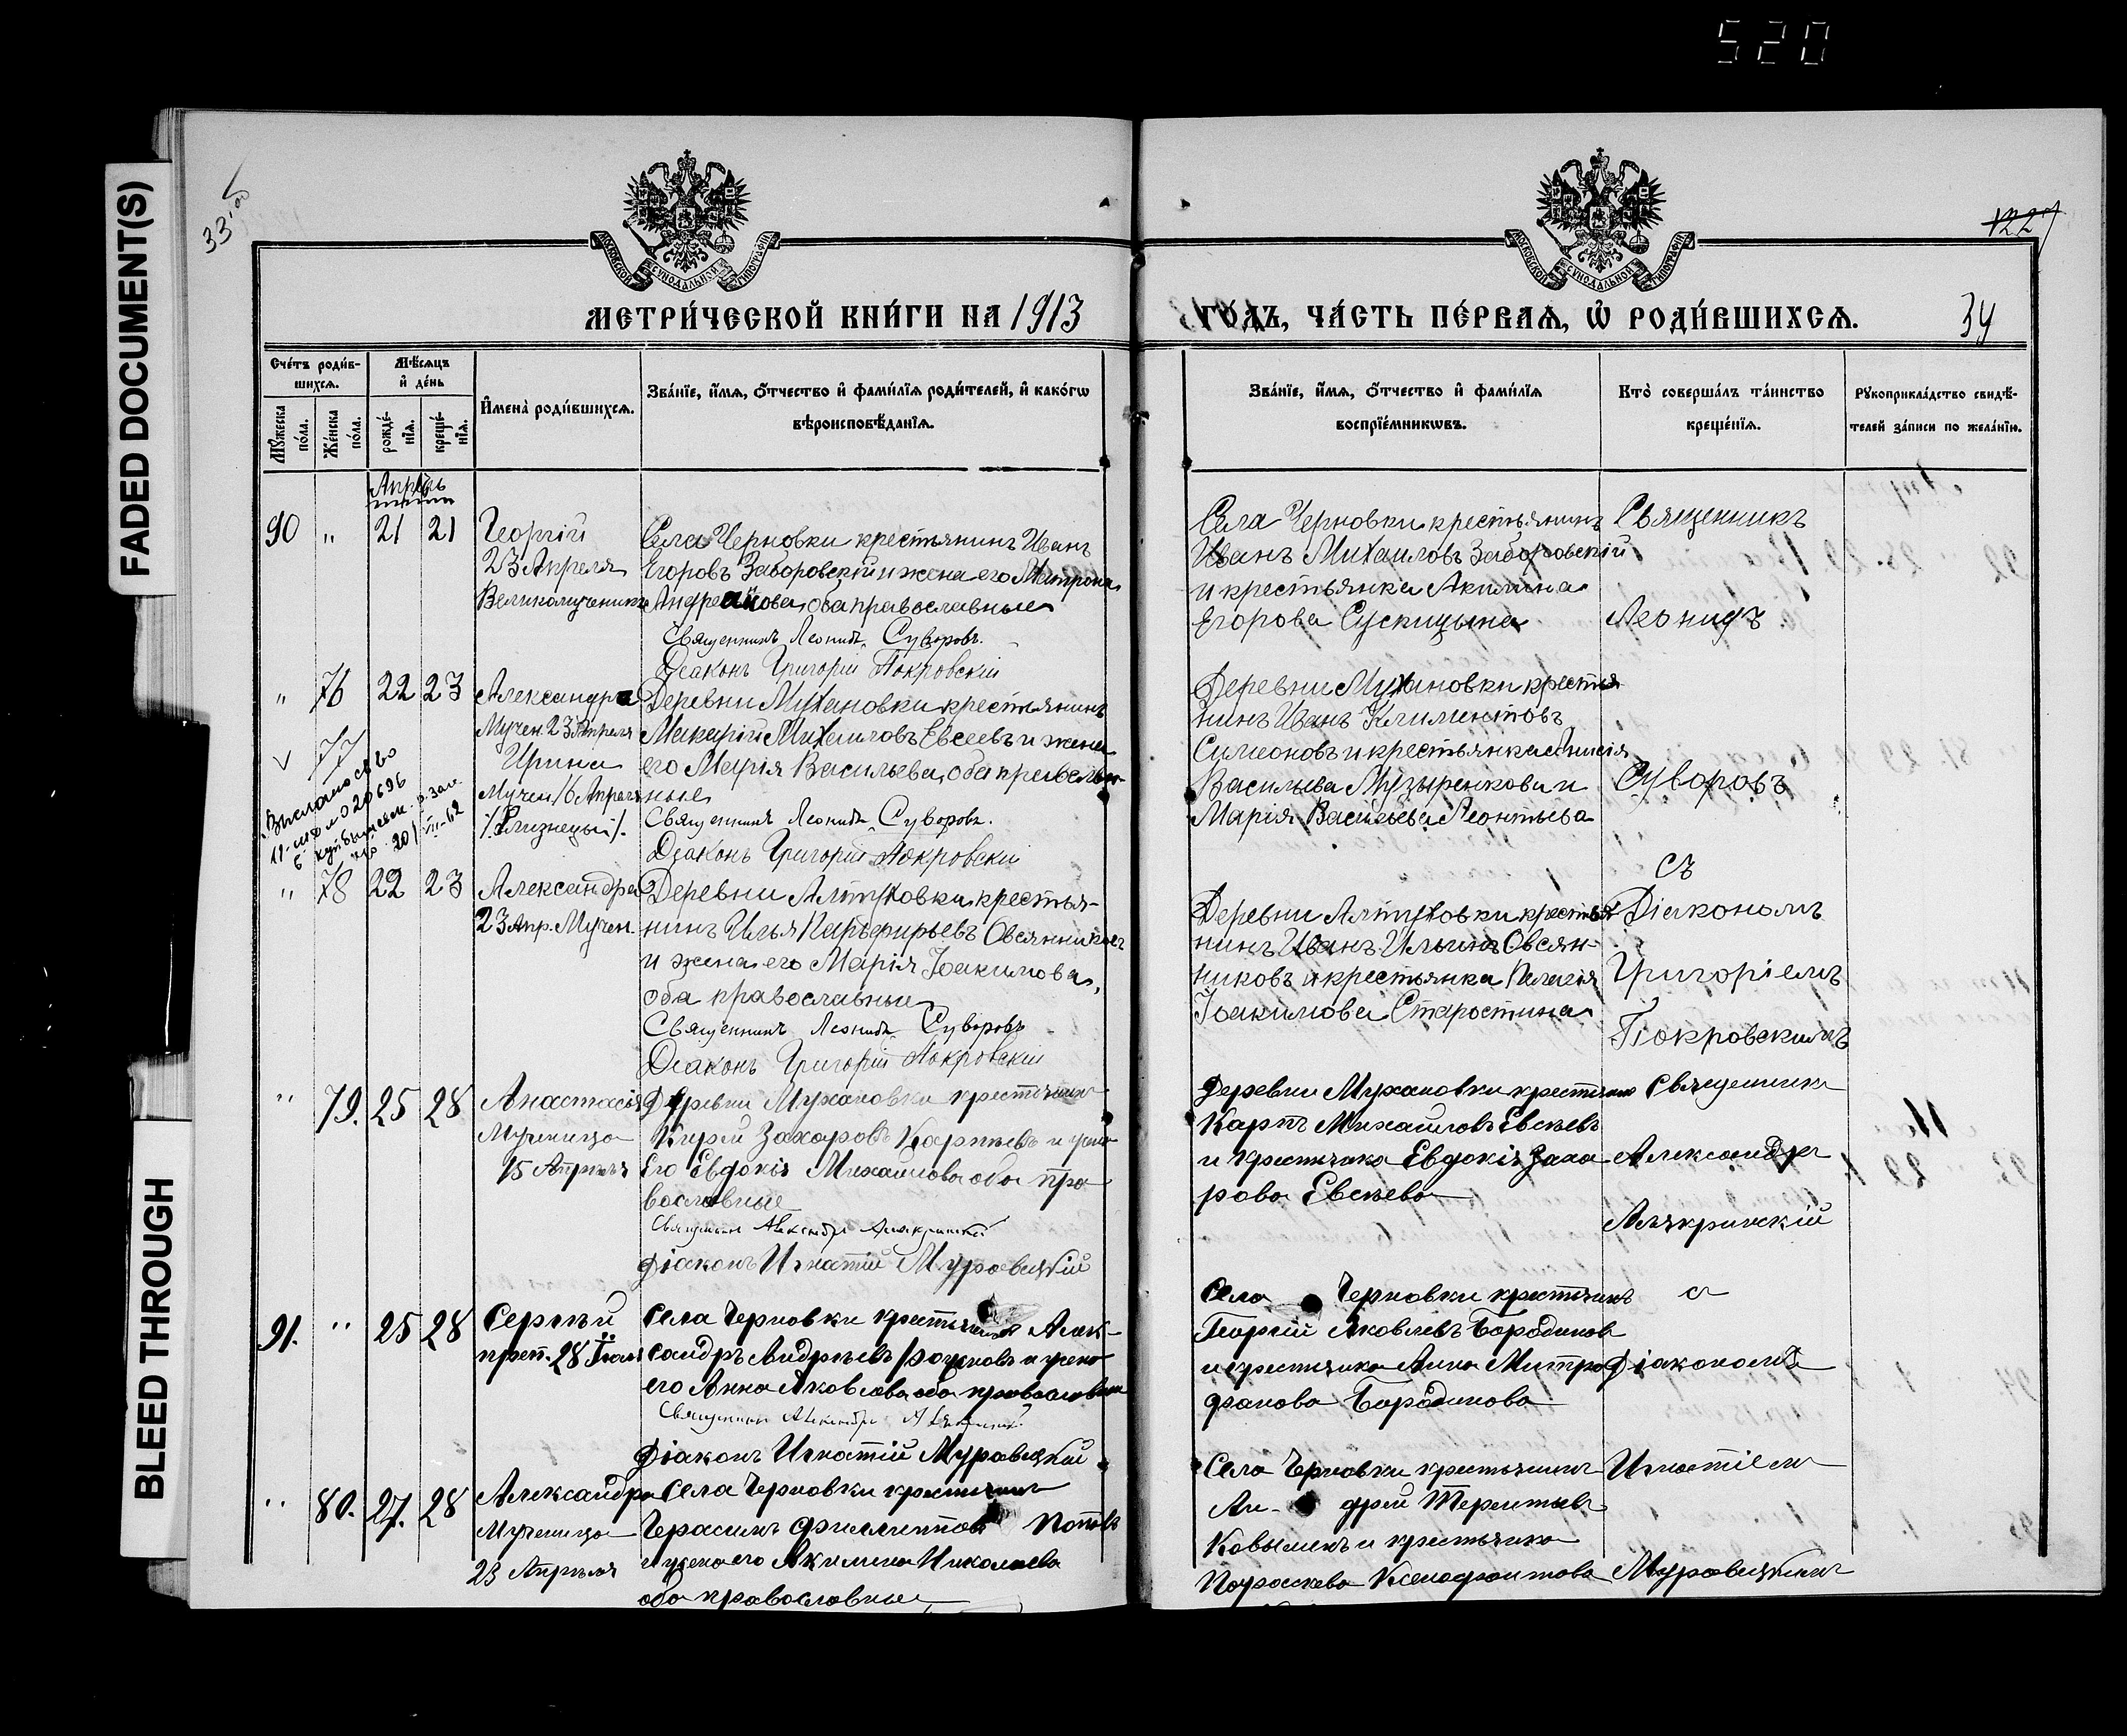 520
FADED DOCUMENT(S)
BLEED THROUGH
33 об
1227
МОСКОВСКОЙ СѴНОДАЛЬНОЙ ТИПОГРАФІИ
МОСКОВСКОЙ СѴНОДАЛЬНОЙ ТИПОГРАФІИ
МЕТРИ́ЧЕСКОЙ КНИ́ГИ НА 1913
ГО́ДЪ, ЧА́СТЬ ПЕ́РВАѦ, Ѡ҆ РОДИ́ВШИХСѦ.
34
Сче́тъ роди́в-
шихсѧ.
Мꙋ́жеска по́ла.
Же́нска по́ла.
Мѣ́сѧцъ и҆ де́нь
рожде́-
нїѧ.
креще́-
нїѧ.
И҆мена̀ роди́вшихсѧ.
Зва́нїе, и҆́мѧ, ѻ҆́тчество и҆ фами́лїѧ роди́телей, и҆ како́гѡ
вѣроисповѣ́данїѧ.
Зва́нїе, и҆́мѧ, ѻ҆́тчество и҆ фами́лїѧ
воспрїе́мникѡвъ.
Кто̀ соверша́лъ та́инство
креще́нїѧ.
Рꙋкоприкла́дство свидѣ́-
телей за́писи по жела́нїю.
Апрѣль
90 " 21 21
Георгій
23 Апреля
Великомученикъ
Села Черновки крестьянинъ Иванъ
Егоровъ Заборовскій и жена его Матрона
Андреянова, оба православные
Священникъ Леонидъ Суворовъ.
Діаконъ Григорій Покровскій
Села Черновки крестьянинъ
Иванъ Михаиловъ Заборовскій
и крестьянка Акилина
Егорова Сускицына
Священникъ
Леонидъ
" 76 22 23
Александра
Мучен. 23 Апреля
Деревни Мухановки крестьянинъ
Макарій Михаиловъ Евсеевъ и жена
его Марія Васильева, оба православ-
ные
Священникъ Леонидъ Суворовъ.
Діаконъ Григорій Покровскій
77
Ирина
Мучен. 16 Апреля
/Близнецы/.
Выслано св во
20/VII-62
Деревни Мухановки крестья
нинъ Иванъ Климентовъ
Симеоновъ и крестьянка Анисія
Васильева Музыренкова и
Марія Васильева Леонтьева
Суворовъ
съ
" 78 22 23
Александра
23 Апр. Мучен.
Деревни Алтуховки крестья-
нинъ Илья Парѳирьевъ Овсянниковъ
и жена его Марія Іоакимова,
оба православные
Священникъ Леонидъ Суворовъ
Діаконъ Григорій Покровскій
Деревни Алтуховки крестья
нинъ Иванъ Ильинъ Овсян-
никовъ и крестьянка Пелагія
Іоакимова Старостина
Діакономъ
Григоріемъ
Покровскимъ
" 79. 25 28
Анастасія
Мученица
15 Апрѣля
Деревни Мухановки крестьянинъ
Захаровъ Карпѣевъ и жена
Его Евдокія Михаилова оба пра
вославные
Священникъ Александръ Алякринскій
Діаконъ Игнатій Муравицкій
Деревни Мухановки крестьянинъ
Карпъ Михаиловъ Евсѣевъ
и крестьянка Евдокія Заха
рова Евсѣева
Священникъ
Александръ
Алякринскій
91. " 25 28
Сергѣй
преп. 28 Іюля
Села Черновки крестьянинъ Алек-
сандръ Андрѣевъ и жена
его Анна Яковлева оба православные
Священникъ Александръ Алякринскій
Діаконъ Игнатій Муравицкій
Села Черновки крестьянинъ
Георгій Яковлевъ Бородинов
и крестьянка Анна Митро
фанова Бородинова
съ
Діакономъ
" 80. 27. 28
Александра
Мученица
23 Апрѣля
Села Черновки крестьянинъ
Герасимъ Филиппов Поповъ
и жена его Акилина Николаева
оба православные
Села Черновки крестьянинъ
Ан- дрей Терентьев
Ковылинъ и крестьянка
Параскева Ксенофонтова
Игнатіемъ
Муравицкимъ